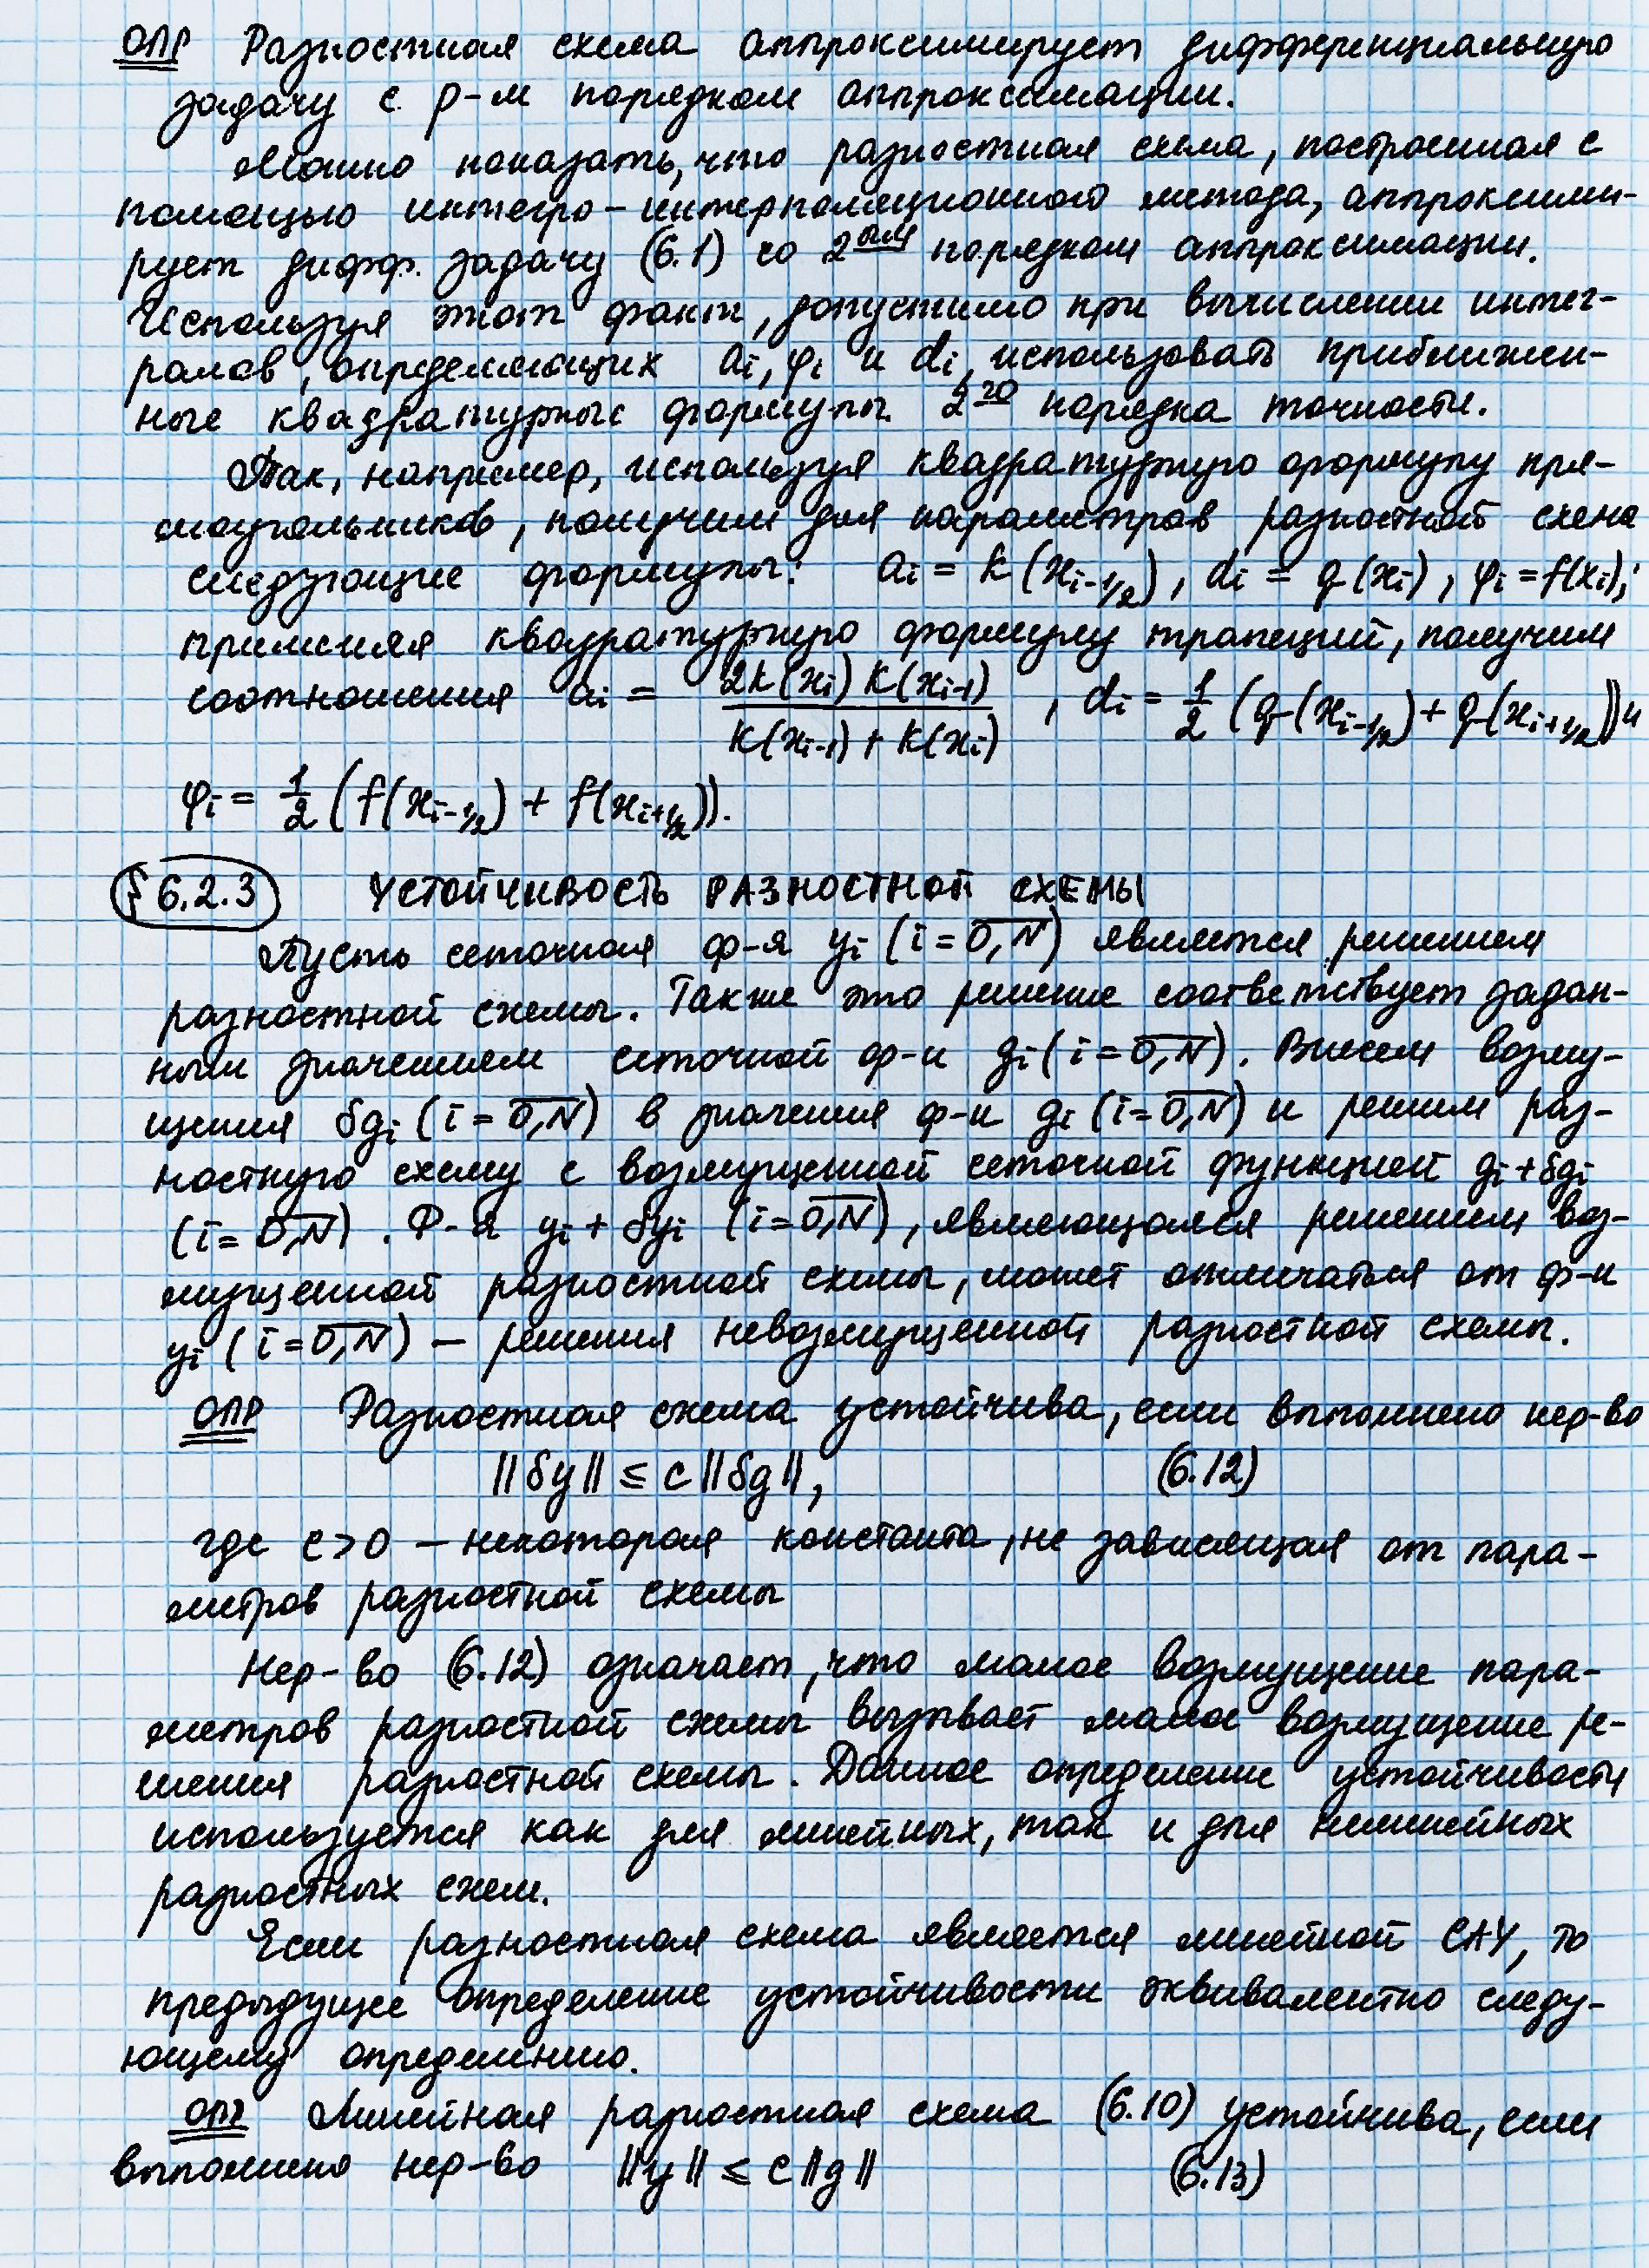 ОПР Разностная схема аппроксимирует дифференциальную
задачу с p-м порядком аппроксимации.
Можно показать, что разностная схема, построенная с
помощью интегро-интерполяционного метода, аппроксими-
рует дифф. задачу (6.1) со 2ым порядком аппроксимации.
Используя этот факт, допустимо при вычислении интег-
ралов, определяющих ai, φi и di, использовать приближен-
ные квадратурные формулы 2го порядка точности.
Так, например, используя квадратурную формулу пря-
моугольников, получим для параметров разностной схемы
следующие формулы: ai = k(xi-1/2), di = q(xi), φi = f(xi);
применяя квадратурную формулу трапеций, получим
соотношения ai = 2k(xi) k(xi-1) / k(xi-1) + k(xi) , di = 1/2 (q(xi-1/2) + q(xi+1/2)) и
φi = 1/2 (f(xi-1/2) + f(xi+1/2)).
§ 6.2.3 УСТОЙЧИВОСТЬ РАЗНОСТНОЙ СХЕМЫ
Пусть сеточная ф-я yi (i = 0,N) является решением
разностной схемы. Также это решение соответствует задан-
ным значениям сеточной ф-и gi (i = 0,N). Внесем возму-
щения δgi (i = 0,N) в значения ф-и gi (i = 0,N) и решим раз-
ностную схему с возмущенной сеточной функцией gi + δgi
(i = 0,N). Ф-я yi + δyi (i = 0,N), являющаяся решением воз-
мущенной разностной схемы, может отличаться от ф-и
yi (i = 0,N) – решения невозмущенной разностной схемы.
ОПР Разностная схема устойчива, если выполнено нер-во
||δy|| ≤ c ||δg||, (6.12)
где c > 0 – некоторая константа, не зависящая от пара-
метров разностной схемы
Нер-во (6.12) означает, что малое возмущение пара-
метров разностной схемы вызывает малое возмущение ре-
шения разностной схемы. Данное определение устойчивости
используется как для линейных, так и для нелинейных
разностных схем.
Если разностная схема является линейной САУ, то
предыдущее определение устойчивости эквивалентно следу-
ющему определению.
ОПР Линейная разностная схема (6.10) устойчива, если
выполнено нер-во ||y|| ≤ c ||g|| (6.13)